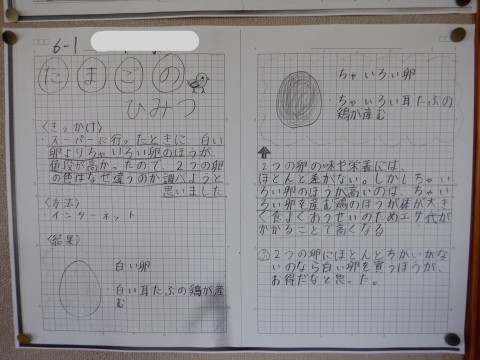 6-1
たまごの
ひみつ
〈きっかけ〉
・スーパーに行ったときに、白い
卵よりちゃいろい卵のほうが、
値段が高かったので、2つの卵
の色はなぜ違うのか調べようと
思いました
〈方法〉
インターネット
〈結果〉
白い卵
・白い耳たぶの鶏が産
む
ちゃいろい卵
・ちゃいろい耳たぶの
鶏が産む
2つの卵の味や栄養には、
ほとんど差がない。しかしちゃい
ろい卵のほうが高いのは、ちゃい
ろい卵を産む鶏のほうが体が大き
く食よくおうせいのためエサ代が
かかることで高くなる
2つの卵にほとんどちがいがな
いのなら白い卵を買うほうが、
お得だなと思った。